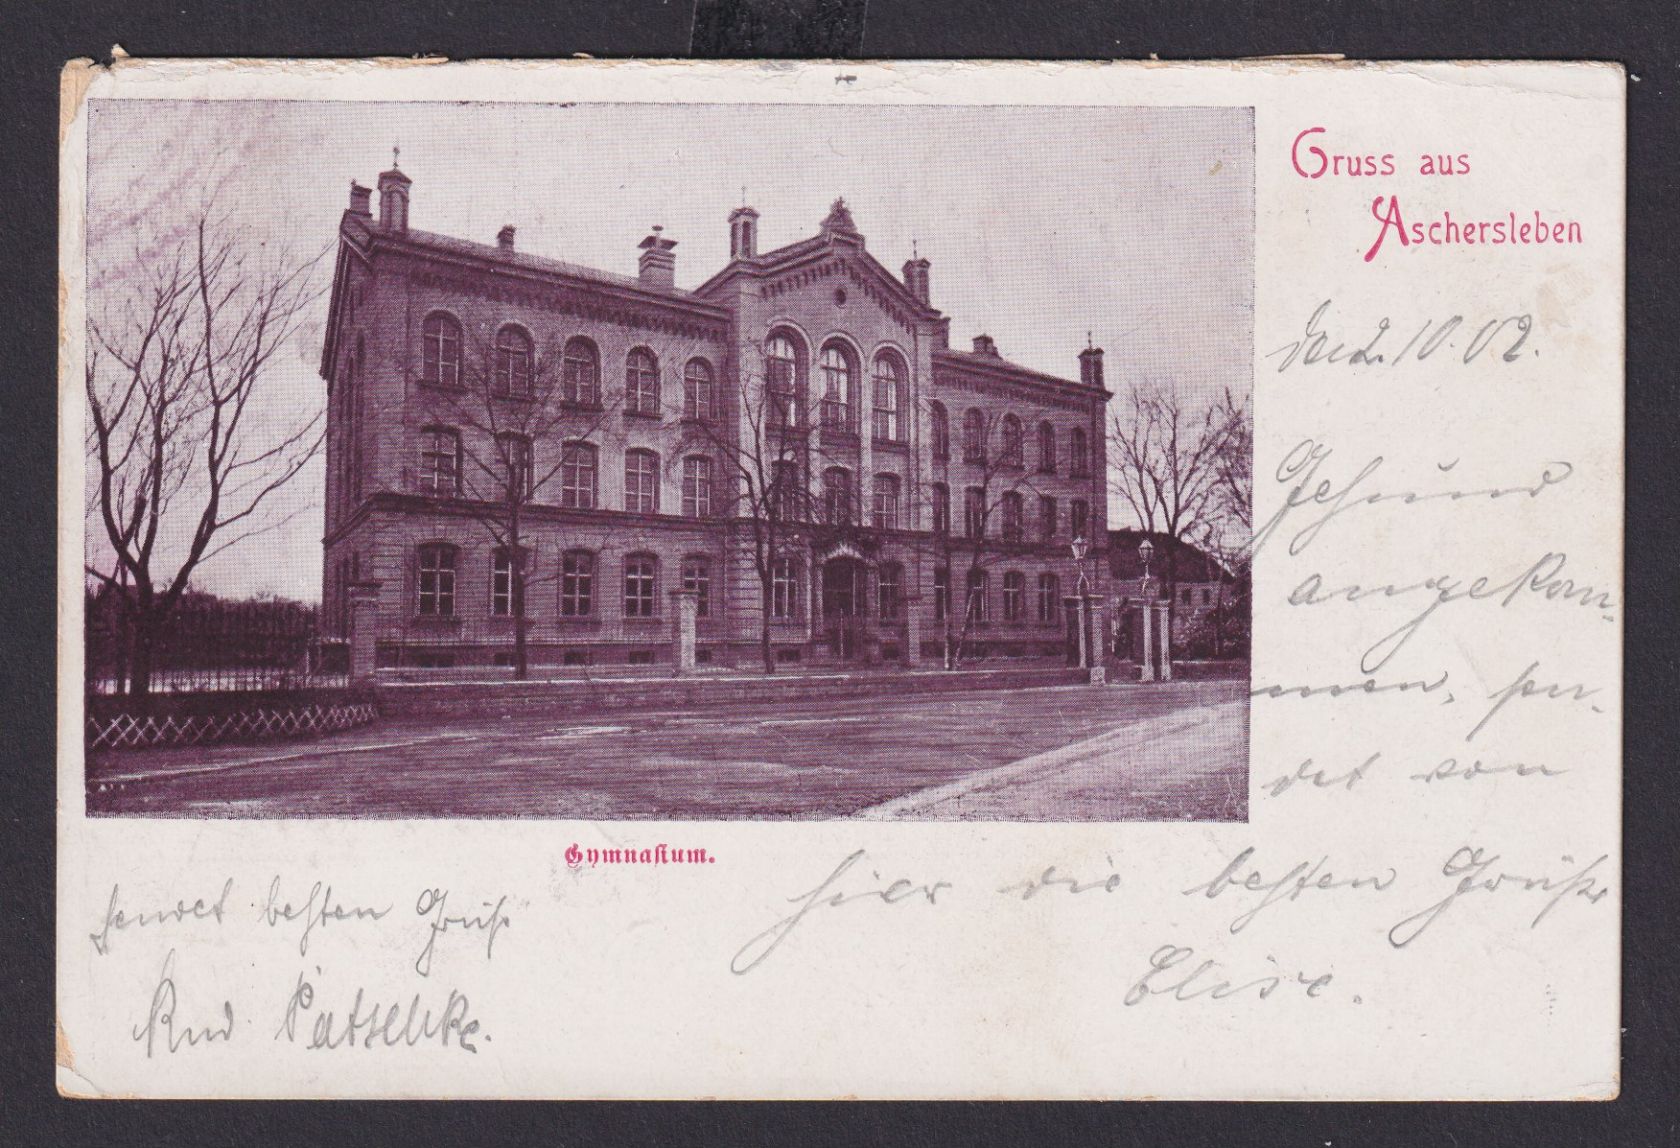 Gruss aus
Aschersleben
2.10.02.
Gesund
angekom-
men, sen-
det von
hier die besten Grüße
Elise.
Gymnasium.
sendet besten Gruß
Rud. Patschke.